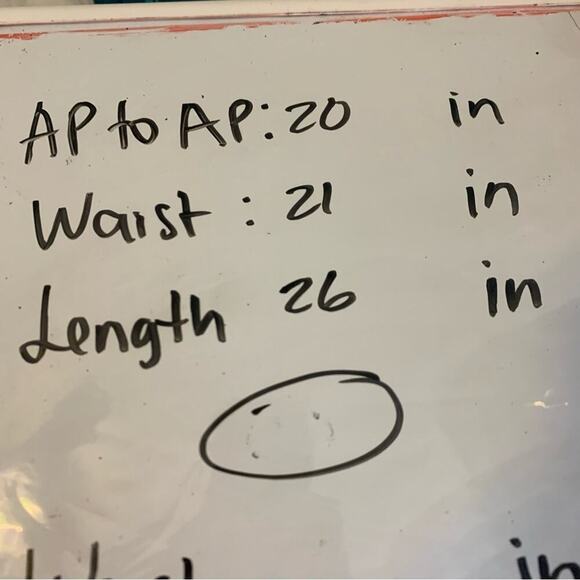 AP to AP: 20 in
Waist : 21 in
Length 26 in
in